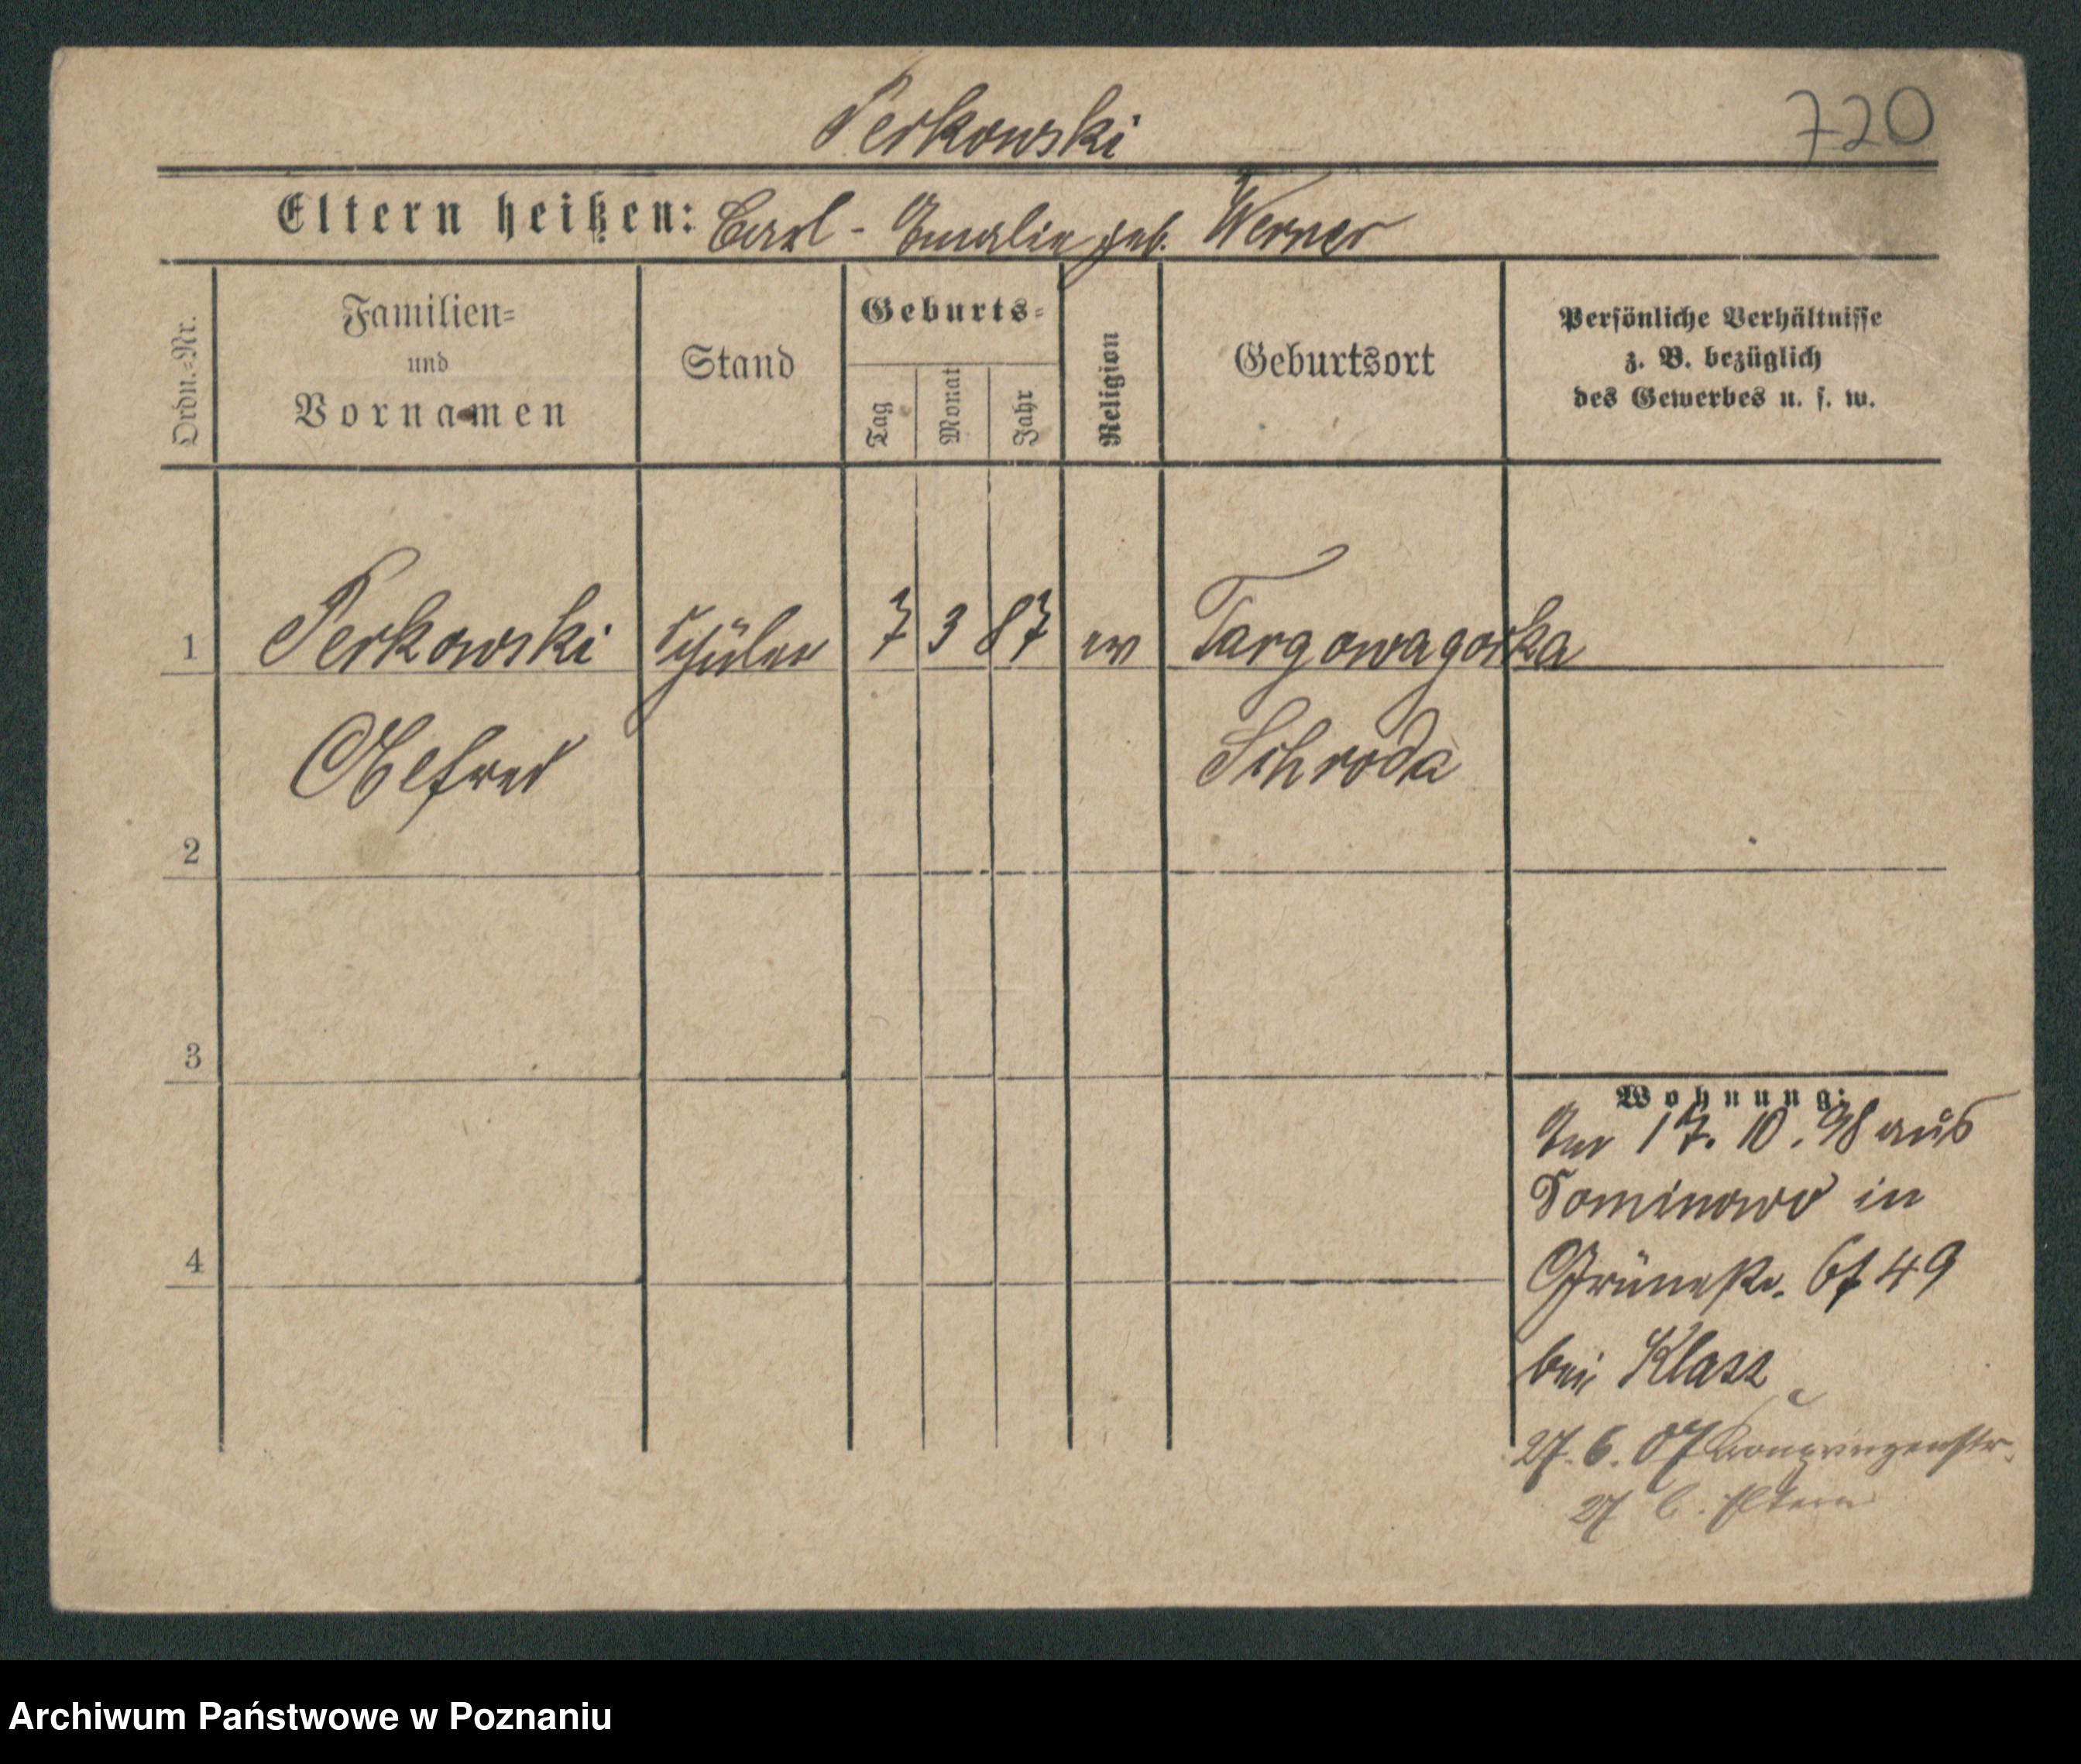 Perkowski
720
Eltern heißen: Carl - Emalie geb. Werner
Ordn.=Nr.
Familien=
und
Vornamen
Stand
Geburts=
Tag
Monat
Jahr
Religion
Geburtsort
Persönliche Verhältnisse
z. B. bezüglich
des Gewerbes u. s. w.
1 Perkowski Schüler 7 3 87 ev Targowagorka
Alfred Schroda
2
3
4
Wohnung:
17. 10. 98 aus
Dominowo in
Grünestr. 49
bei Klass
27. 6. 07 Kronprinzenstr.
27 b. Eltern
Archiwum Państwowe w Poznaniu